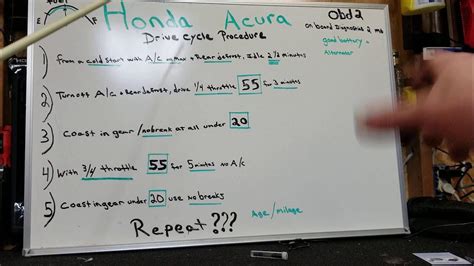 Fuel
E F
Honda Acura
Obd2
on board Diagnosics 2
Drive Cycle Procedure
good battery +
Alternator
1) From a cold start with A/c on max + Rear defrost, Idle 2 1/2 minutes
2) Turn off A/c + Rear defrost, drive 1/4 throttle 55 for 3 minutes
3) Coast in gear / no break at all under 20
4) With 3/4 throttle 55 for 5 minutes no A/c
5) Coast in gear under 20 use no breaks
Age / milage
Repeat ???